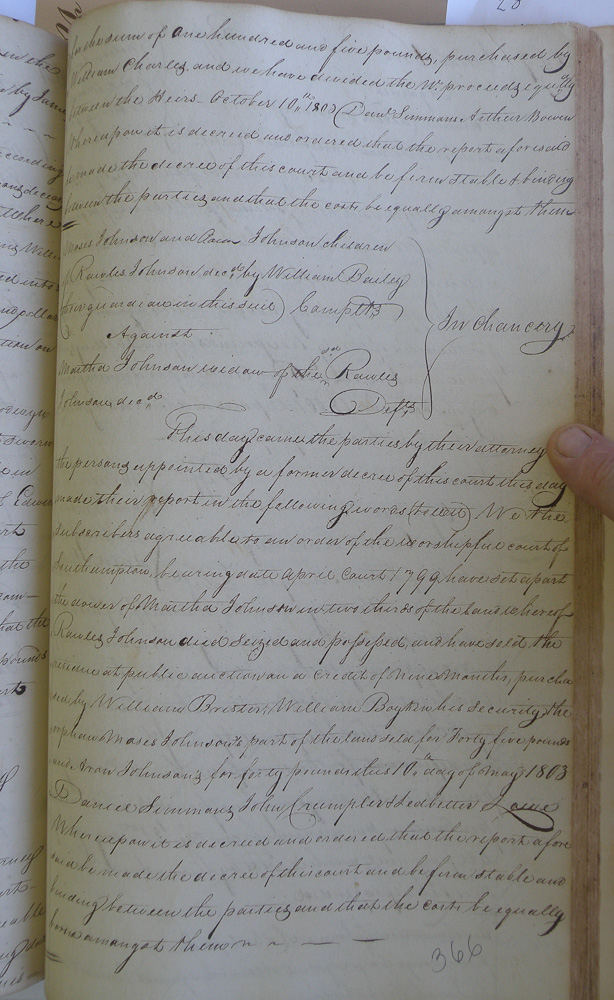 for the sum of one hundred and five pounds, purchased by
William Charles, and we have divided the nt. proceeds equally
between the Heirs - October 10th 1802 (Danl. Simmons Arthur Bowen
Whereupon it is decreed and ordered that the report aforesaid
be made the decree of this court and be firm stable & binding
between the parties, and that the costs be equally amongst them
Moses Johnson and Aaron Johnson children
of Rawles Johnson decd. by William Bailey
their guardian in this suit) Complts
Against
In Chancery
Martha Johnson widow of the sd. Rawles
Johnson decd.
Defts
This day came the parties by their attorney
the persons appointed by a former decree of this court this day
made their report in the following words (to wit) We the
subscribers agreeable to an order of the worshipful court of
Southampton, bearing date April Court 1799 have set apart
the dower of Martha Johnson in two thirds of the land whereof
Rawles Johnson died seized and possessed, and have sold the
same at public auction on a credit of Nine Months, purcha
sed by William Bretter, William Boykin his security, the
orphan Moses Johnson's part of the land sold for Forty five pounds
and Aron Johnsons for forty pounds this 10th day of May 1803
Daniel Simmons, John Crumpler & Ledbetter Lowe
Whereupon it is decreed and ordered that the report afore
said be made the decree of this court and be firm stable and
binding between the parties, and that the costs be equally
borne amongst them
366